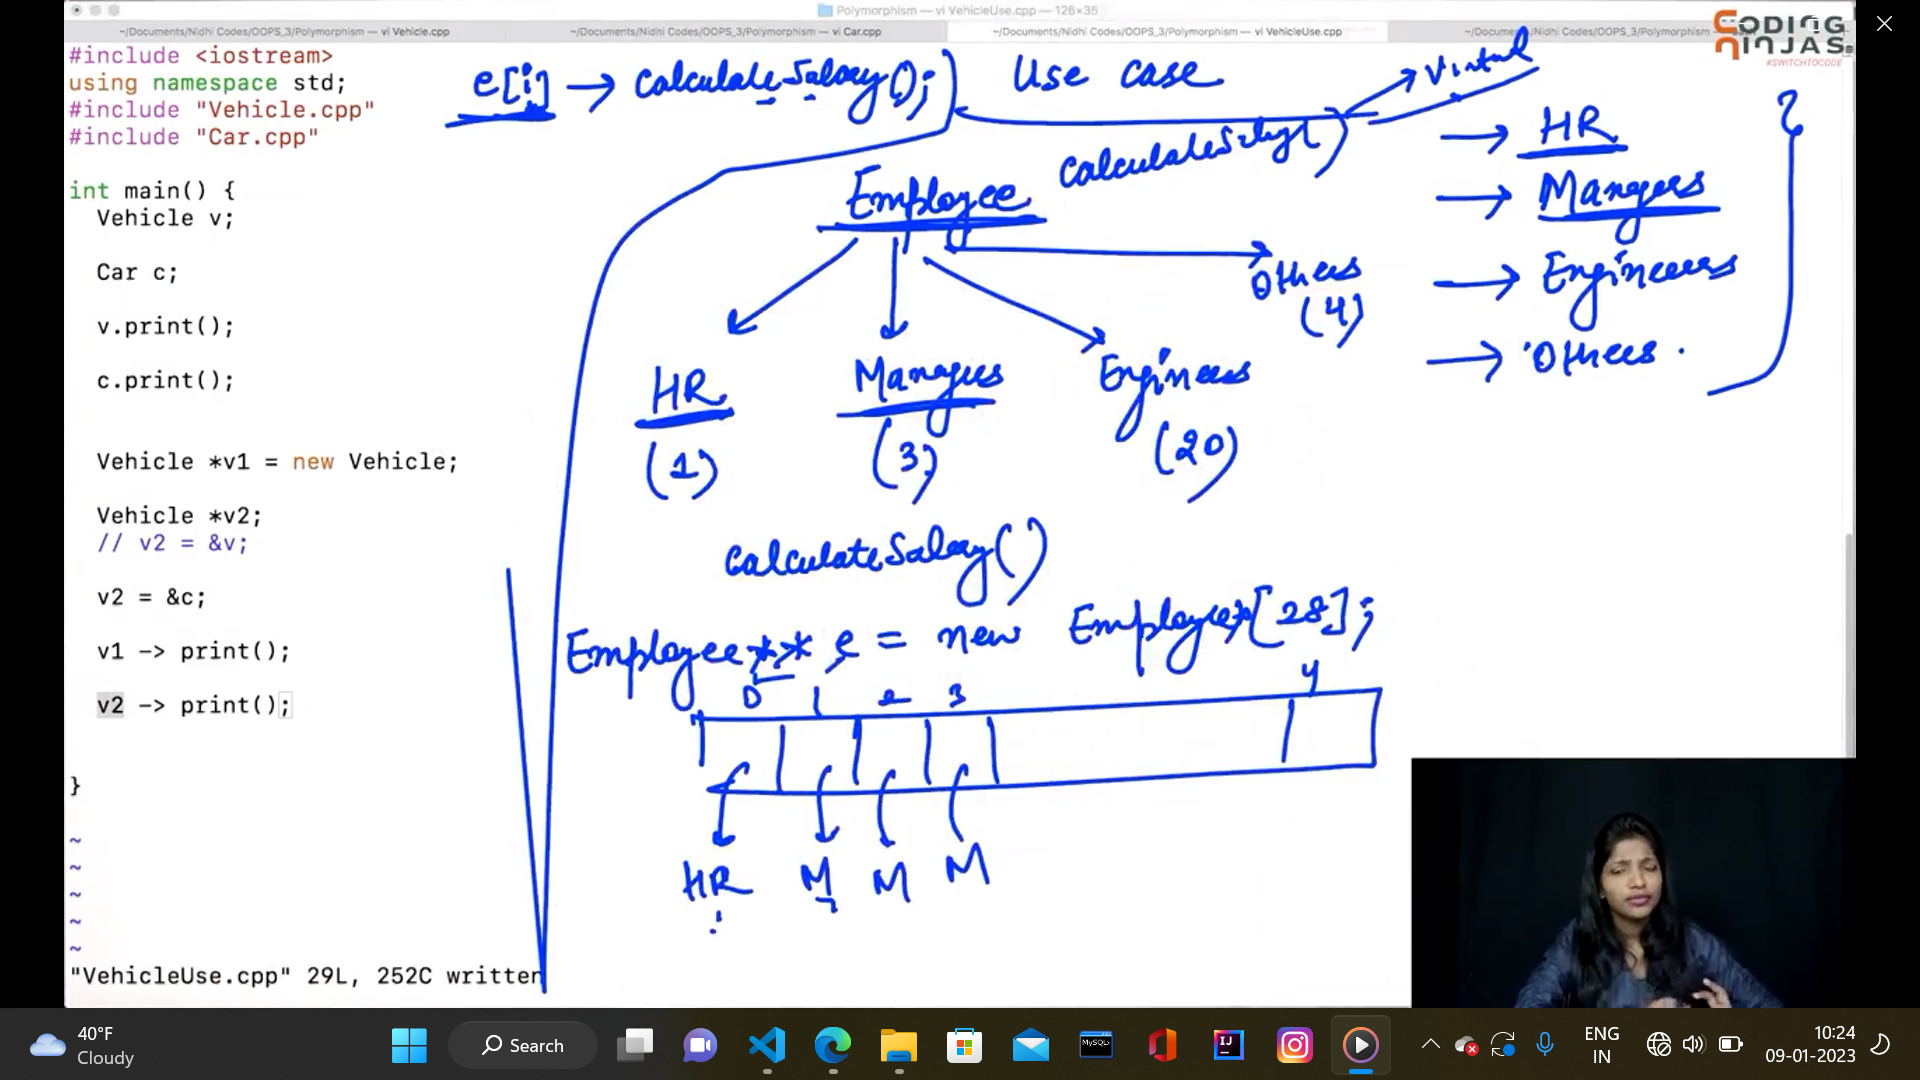 Polymorphism — vi VehicleUse.cpp — 126×35
~/Documents/Nidhi Codes/OOPS_3/Polymorphism — vi Vehicle.cpp
~/Documents/Nidhi Codes/OOPS_3/Polymorphism — vi Car.cpp
~/Documents/Nidhi Codes/OOPS_3/Polymorphism — vi VehicleUse.cpp
~/Documents/Nidhi Codes/OOPS_3/Polymorphism —
CODING
NINJAS
#SWITCHTOCODE
#include <iostream>
using namespace std;
#include "Vehicle.cpp"
#include "Car.cpp"
int main() {
Vehicle v;
Car c;
v.print();
c.print();
Vehicle *v1 = new Vehicle;
Vehicle *v2;
// v2 = &v;
v2 = &c;
v1 -> print();
v2 -> print();
}
~
~
~
~
~
"VehicleUse.cpp" 29L, 252C written
e[i] → calculateSalary();
Use case
Virtual
calculateSalary()
Employee
→ HR
→ Managers
→ Engineers
→ Others
HR
(1)
Managers
(3)
Engineers
(20)
Others
(4)
calculateSalary()
Employee** e = new Employee*[28];
0 1 2 3
HR M M M
40°F
Cloudy
Search
MySQL
IJ
ENG
IN
10:24
09-01-2023